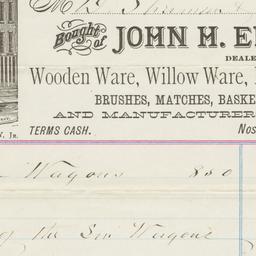 Bought of JOHN H. E
DEALE
Wooden Ware, Willow Ware,
BRUSHES, MATCHES, BASKE
AND MANUFACTURER
, JR. TERMS CASH. Nos
Wagons 850
Wagons